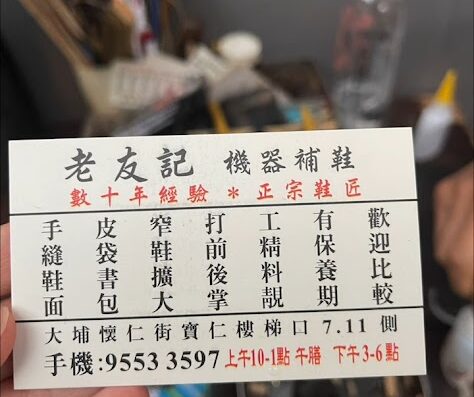 老友記 機器補鞋
數十年經驗＊正宗鞋匠
手縫鞋面
皮袋書包
窄鞋擴大
打前後掌
工精料靚
有保養期
歡迎比較
大埔懷仁街寶仁樓梯口 7.11 側
手機:9553 3597 上午10-1點 午膳 下午3-6點